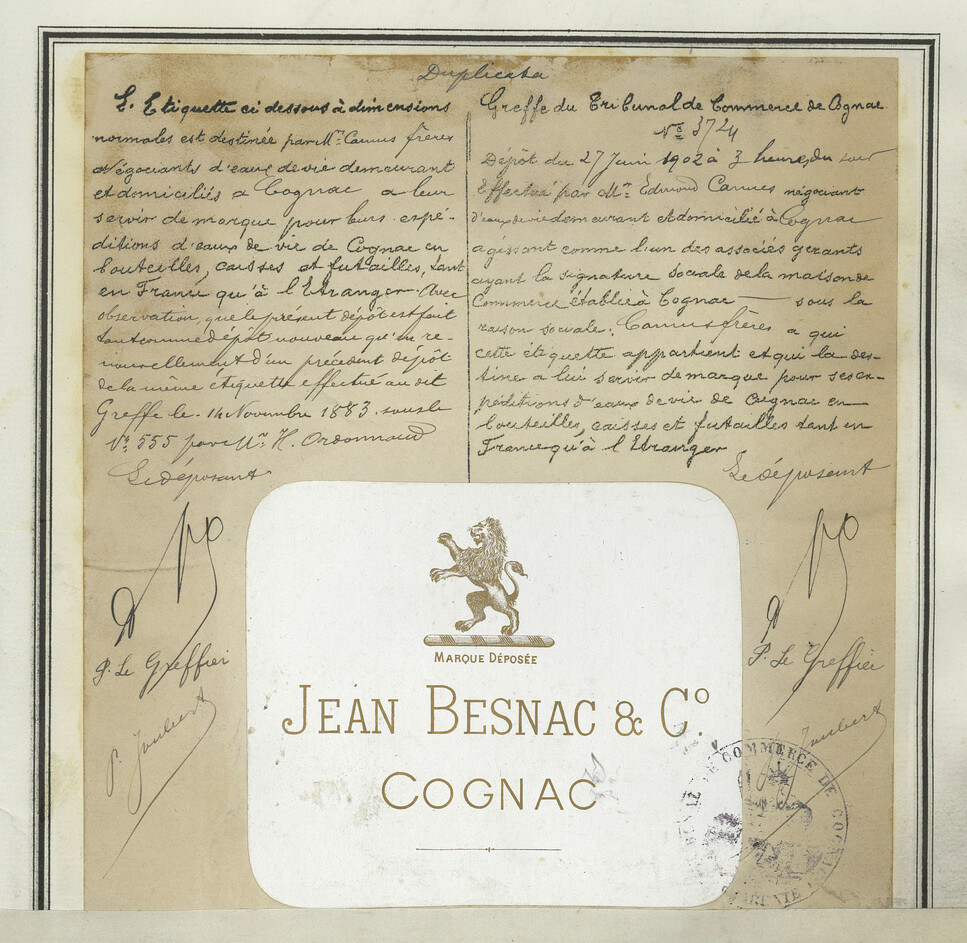 Duplicata
L. Etiquette ci dessous à dimensions
normales est destinée par Mrs. Camus frères
négociants d'eaux de vie demeurant
et domiciliés à Cognac à leur
servir de marque pour leurs expé-
ditions d'eaux de vie de Cognac en
bouteilles, caisses et futailles, tant
en France qu'à l'Etranger. Avec
observation, que le présent dépôt est fait
tant comme dépôt nouveau qu'en re-
nouvellement d'un précédent dépôt
de la même étiquette effectué au dit
Greffe le 14 Novembre 1883 sous le
No. 555 par Mr. H. Ordonnaud
Le déposant
P. Le Greffier
P. Joubert
Greffe du Tribunal de Commerce de Cognac
No 3724
Dépôt du 27 Juin 1902 à 3 heures du soir
Effectué par Mr. Edmond Camus négociant
d'eaux de vie demeurant et domicilié à Cognac
agissant comme l'un des associés gérants
ayant la signature sociale de la maison de
Commerce établie à Cognac — sous la
raison sociale: Camus frères à qui
cette étiquette appartient et qui la des-
tine à lui servir de marque pour ses ex-
péditions d'eaux de vie de Cognac en
bouteilles, caisses et futailles tant en
France qu'à l'Etranger
Le déposant
P. Le Greffier
Joubert
MARQUE DÉPOSÉE
JEAN BESNAC & Co.
COGNAC
DE COMMERCE DE COGNAC